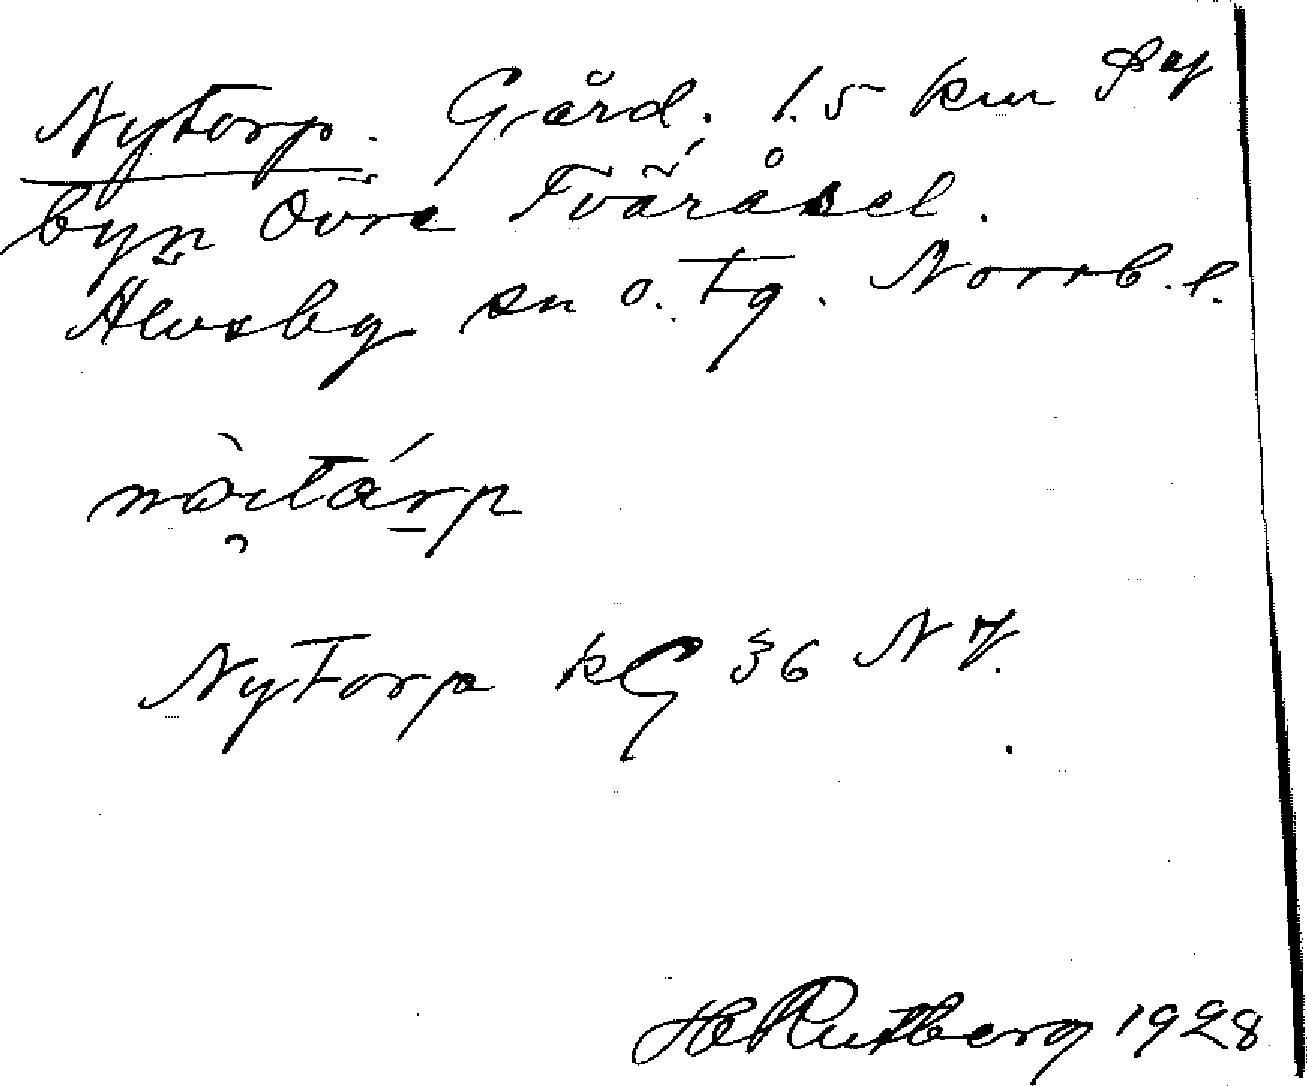 Nytorp. Gård. 1.5 km
byn Övre Tväråsel.
Älvsby sn o. tg. Norrb. l.
Nytorp kG 36 N 7.
Rutberg 1928